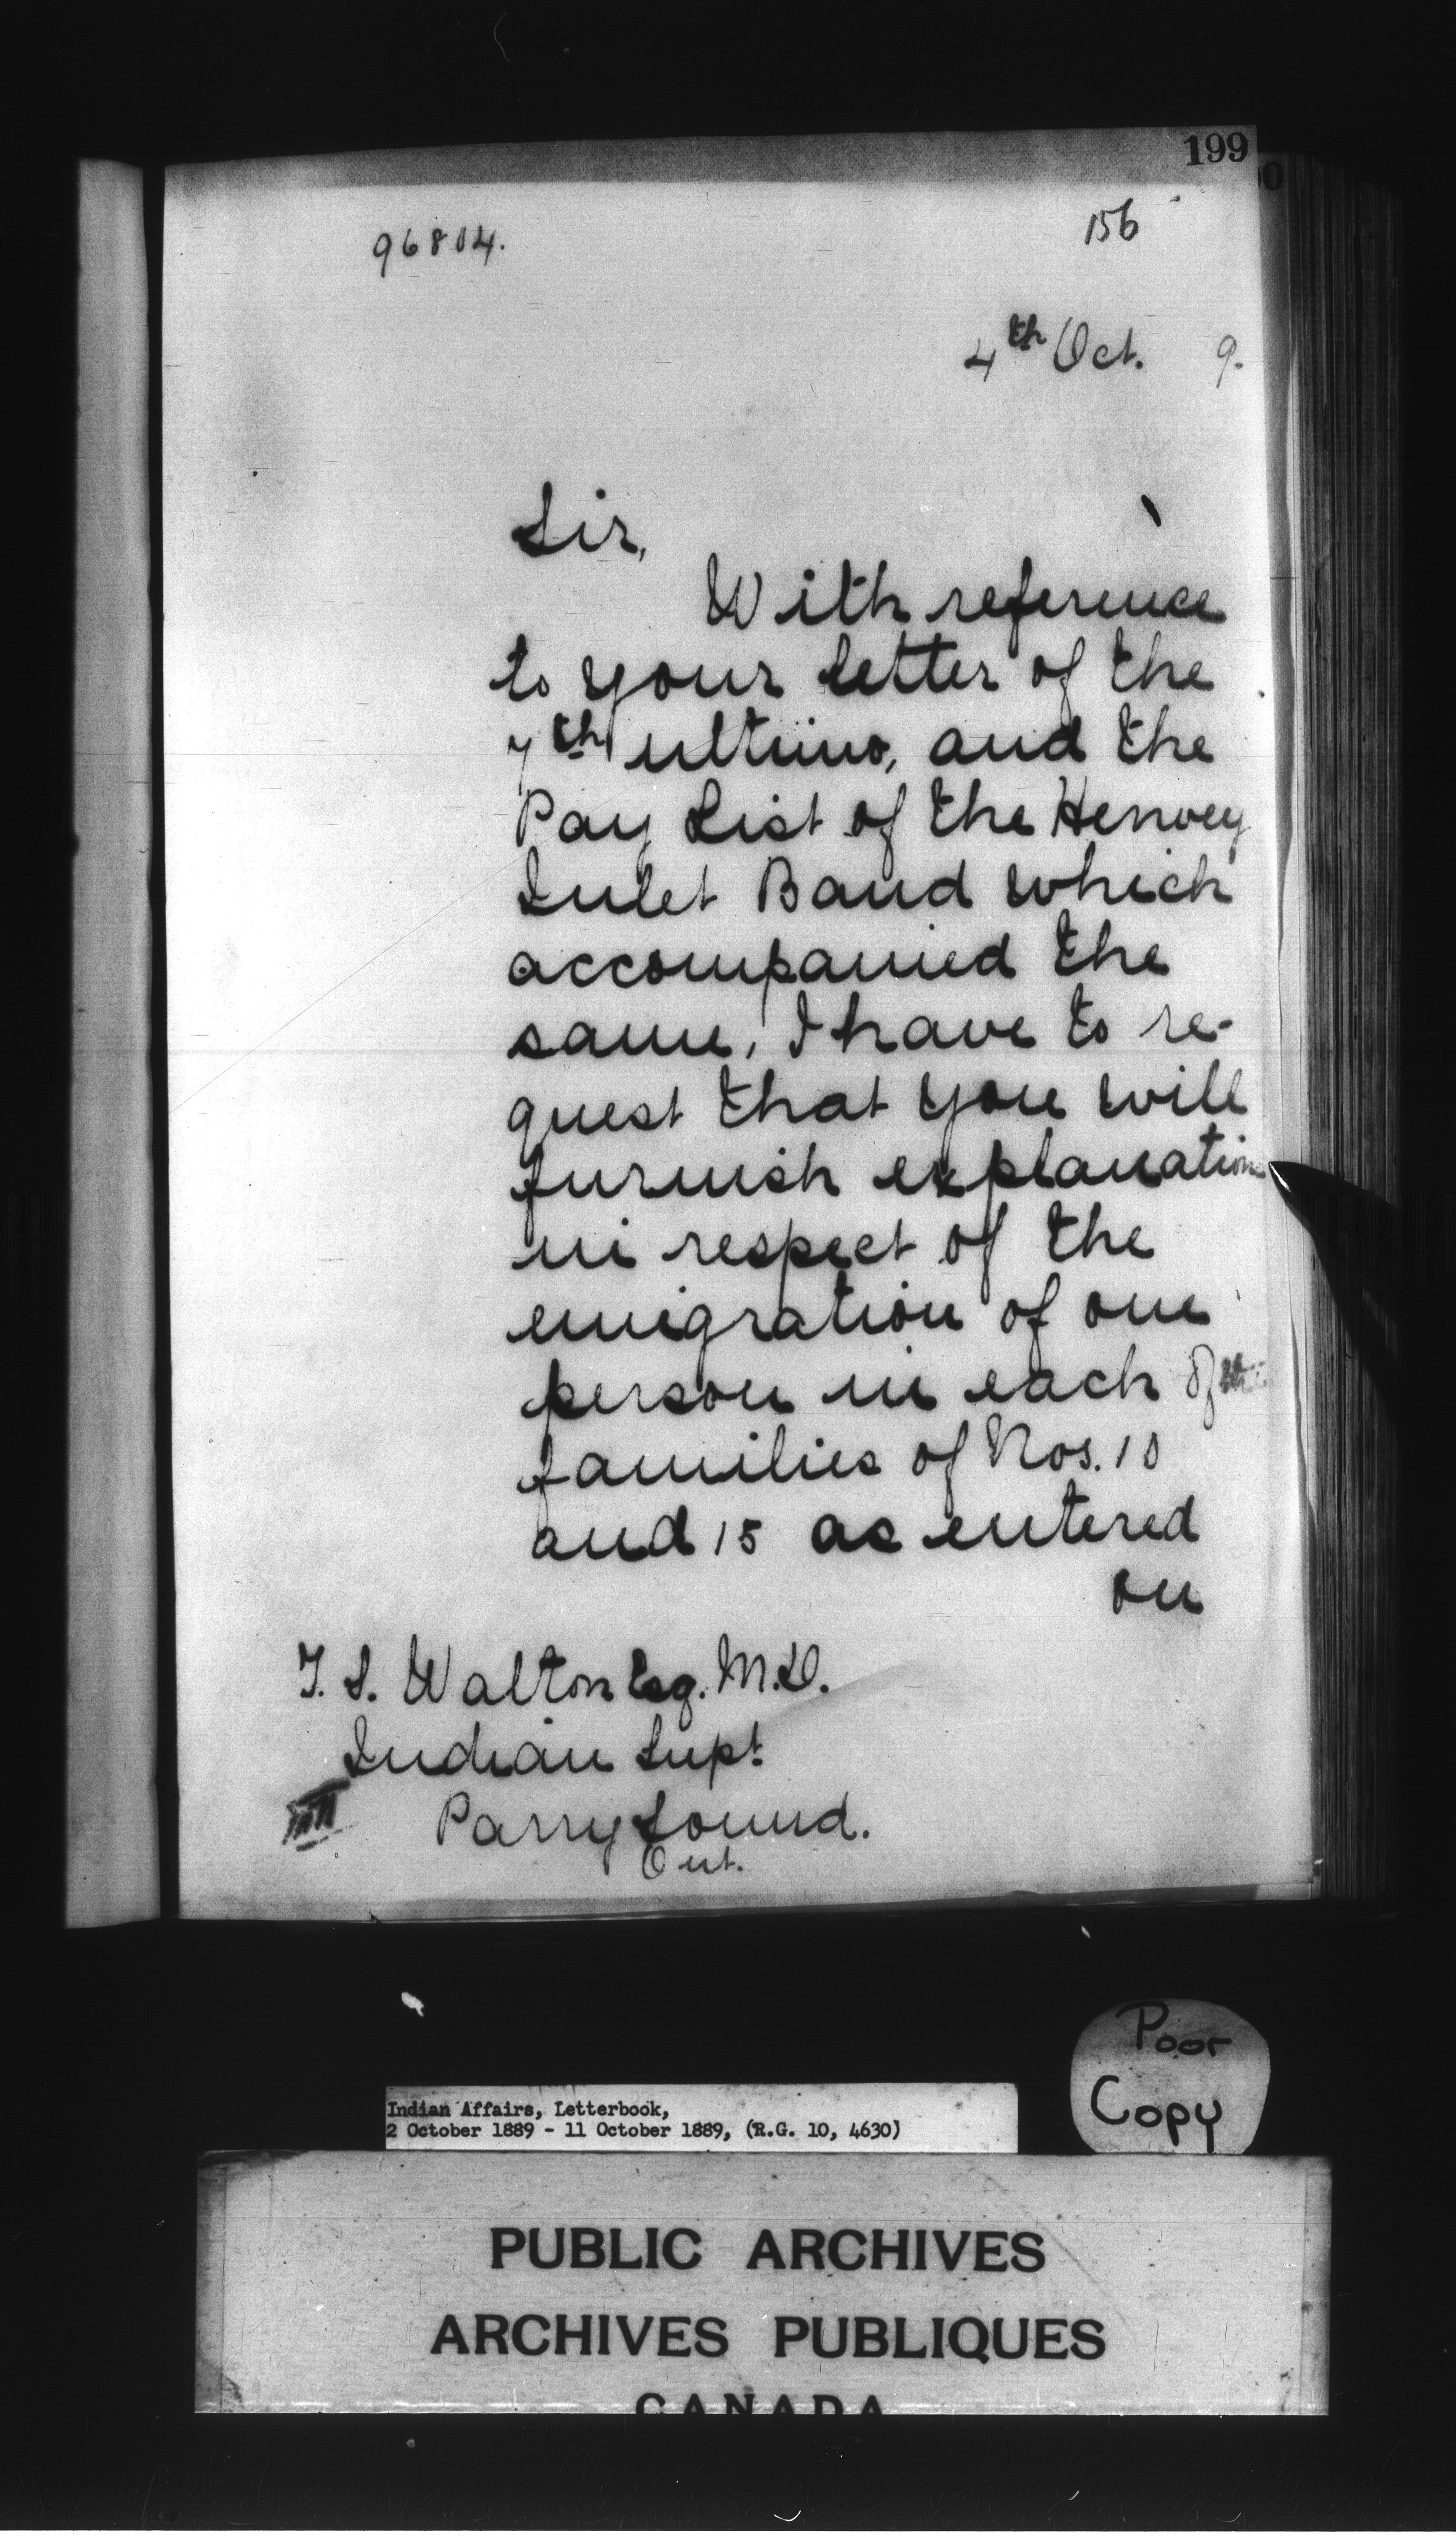 199
96804.
156
4th Oct. 9.
Sir,
With reference
to your letter of the
7th ultimo, and the
Pay List of the Henvey
Inlet Band which
accompanied the
same, I have to re-
quest that you will
furnish explanation
in respect of the
emigration of one
person in each of the
families of Nos. 10
and 15 as entered
on
T. S. Walton Esq. M.D.
Indian Supt
Parry Sound.
Ont.
Poor
Copy
Indian Affairs, Letterbook,
2 October 1889 - 11 October 1889, (R.G. 10, 4630)
PUBLIC ARCHIVES
ARCHIVES PUBLIQUES
CANADA